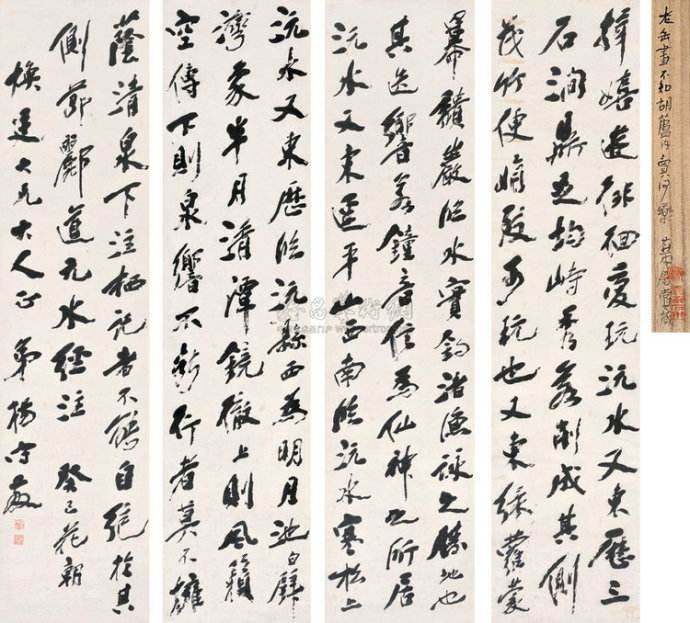 楫嬉遊徘徊愛玩沅水又東歷三
石澗鼎足均峙秀若削成其側
茂竹便娟致可玩也又東綠蘿蒙
冪頹巖臨水實釣渚漁詠之勝地也
其迭響若鐘音信為仙神之所居
沅水又東逕平山西南臨沅水寒松上
沅水又東歷臨沅縣西為明月池白璧
灣象半月清潭鏡徹上則風籟
空傳下則泉響不斷行者莫不擁
蔭清泉下注栖託者不能自絕於其
側節酈道元水經注 癸巳花朝
煥廷大兄大人正 弟楊守敬